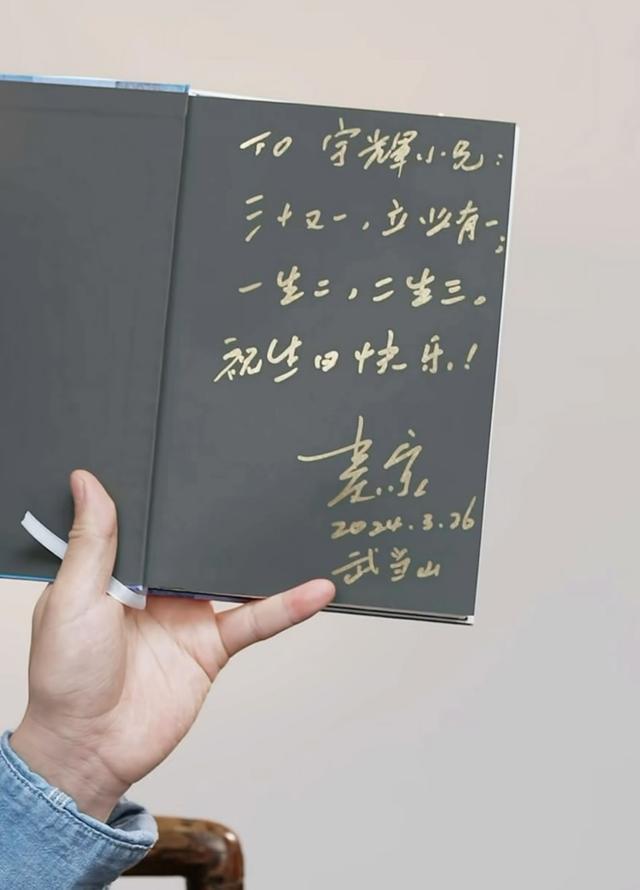 TO 宇辉小兄：
三十又一，立业有一；
一生二，二生三。
祝生日快乐！
2024.3.26
武当山